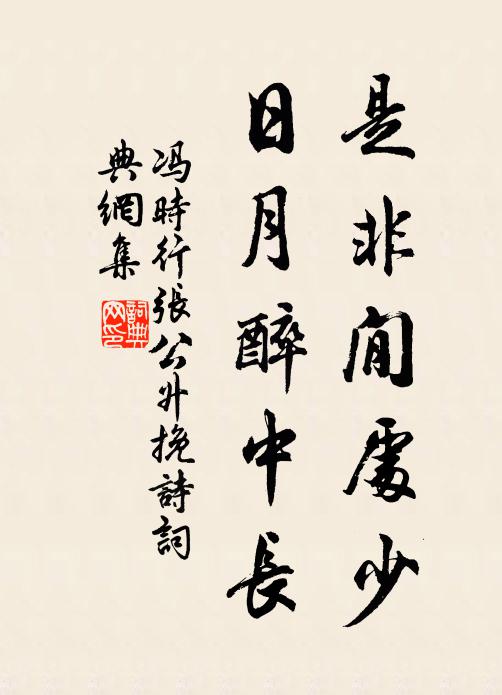 是非閒處少
日月醉中長
馮時行張公升挽詩詞
典網集
詞典網印